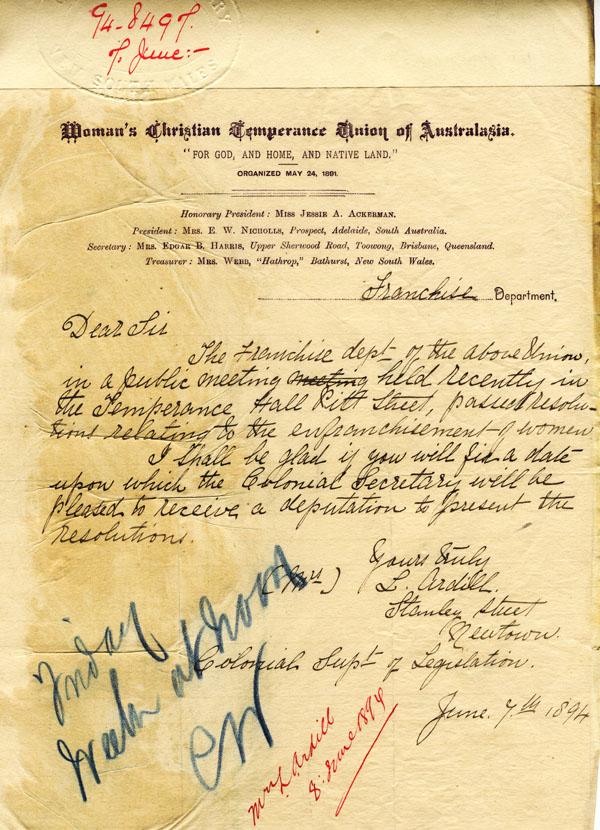 94-8497.
7. June:-
NEW SOUTH WALES
Woman's Christian Temperance Union of Australasia.
"FOR GOD, AND HOME, AND NATIVE LAND."
ORGANIZED MAY 24, 1891.
Honorary President: MISS JESSIE A. ACKERMAN.
President: MRS. E. W. NICHOLLS, Prospect, Adelaide, South Australia.
Secretary: MRS. EDGAR B. HARRIS, Upper Sherwood Road, Toowong, Brisbane, Queensland.
Treasurer: MRS. WEBB, "Hathrop," Bathurst, New South Wales.
Franchise Department.
Dear Sir
The Franchise dept of the above Union,
in a public meeting meeting held recently in
the Temperance Hall Pitt Street, passed resolu-
tions relating to the enfranchisement of women
I shall be glad if you will fix a date
upon which the Colonial Secretary will be
pleased to receive a deputation to present the
resolutions.
Yours truly
(Mrs) L. Ardill.
Stanley Street
Newtown.
Colonial Supt of Legislation.
June 7th 1894
Friday
week at noon
Mrs L Ardill
8 June 1894